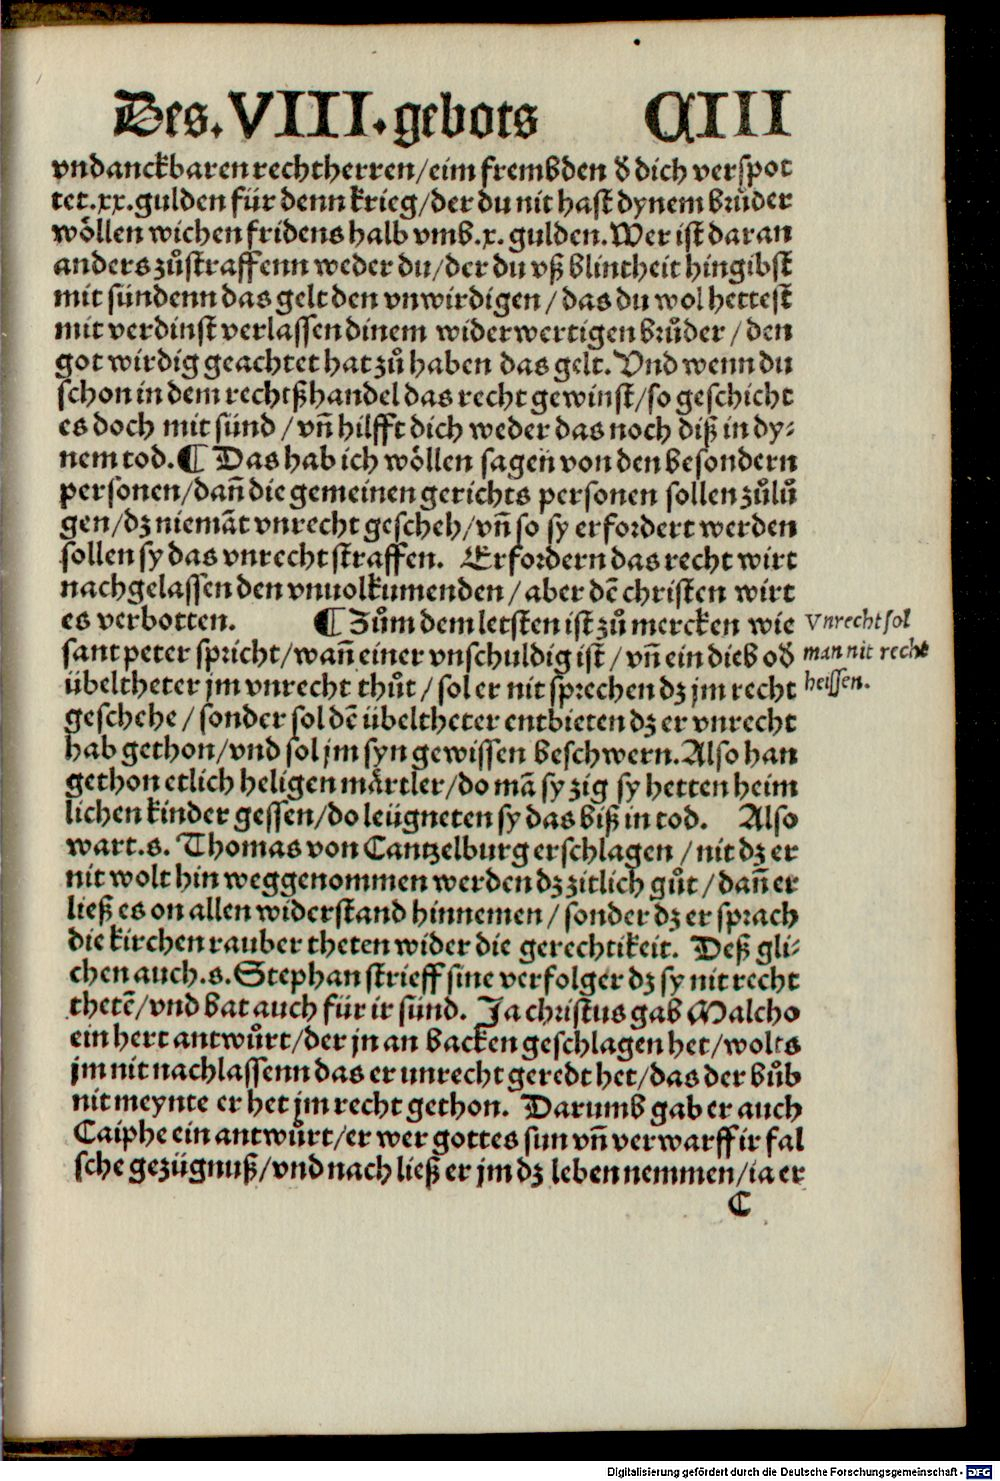 Des. VIII. gebots CIII
vndanckbaren rechtherren/eim frembden d̕ dich verspot
tet.xx.gulden für denn krieg/der du nit hast dynem brůder
wöllen wichen fridens halb vmb.x. gulden. Wer ist daran
anders zůstraffenn weder du/der du vß blintheit hingibst
mit sündenn das gelt den vnwirdigen/das du wol hettest
mit verdinst verlassen dinem widerwertigen brůder/den
got wirdig geachtet hat zů haben das gelt. Vnd wenn du
schon in dem rechtßhandel das recht gewinst/so geschicht
es doch mit sünd/vñ hilfft dich weder das noch diß in dy-
nem tod.¶ Das hab ich wöllen sagen von den besondern
personen/dañ die gemeinen gerichts personen sollen zůlů
gen/dz niemãt vnrecht gescheh/vñ so sy erfordert werden
sollen sy das vnrecht straffen. Erfordern das recht wirt
nachgelassen den vnuolkumenden/aber dẽ christen wirt
es verbotten. ¶ Zům dem letsten ist zů mercken wie
sant peter spricht/wañ einer vnschuldig ist/vñ ein dieb od̕
übeltheter jm vnrecht thůt/sol er nit sprechen dz jm recht
geschehe/sonder sol dẽ übeltheter entbieten dz er vnrecht
hab gethon/vnd sol jm syn gewissen beschwern. Also han
gethon etlich heligen märtler/do mã sy zig sy hetten heim
lichen kinder gessen/do leügneten sy das biß in tod. Also
wart.s. Thomas von Cantzelburg erschlagen/nit dz er
nit wolt hin weggenommen werden dz zitlich gůt/dañ er
ließ es on allen widerstand hinnemen/sonder dz er sprach
die kirchen rauber theten wider die gerechtikeit. Deß gli-
chen auch.s. Stephan strieff sine verfolger dz sy nit recht
thetẽ/vnd bat auch für ir sünd. Ja christus gab Malcho
ein hert antwůrt/der jn an backen geschlagen het/wolts
jm nit nachlassenn das er unrecht geredt het/das der bůb
nit meynte er het jm recht gethon. Darumb gab er auch
Caiphe ein antwůrt/er wer gottes sun vñ verwarff ir fal
sche gezügnuß/vnd nach ließ er jm dz leben nemmen/ia er
C
Vnrecht sol
man nit recht
heissen.
Digitalisierung gefördert durch die Deutsche Forschungsgemeinschaft - DFG